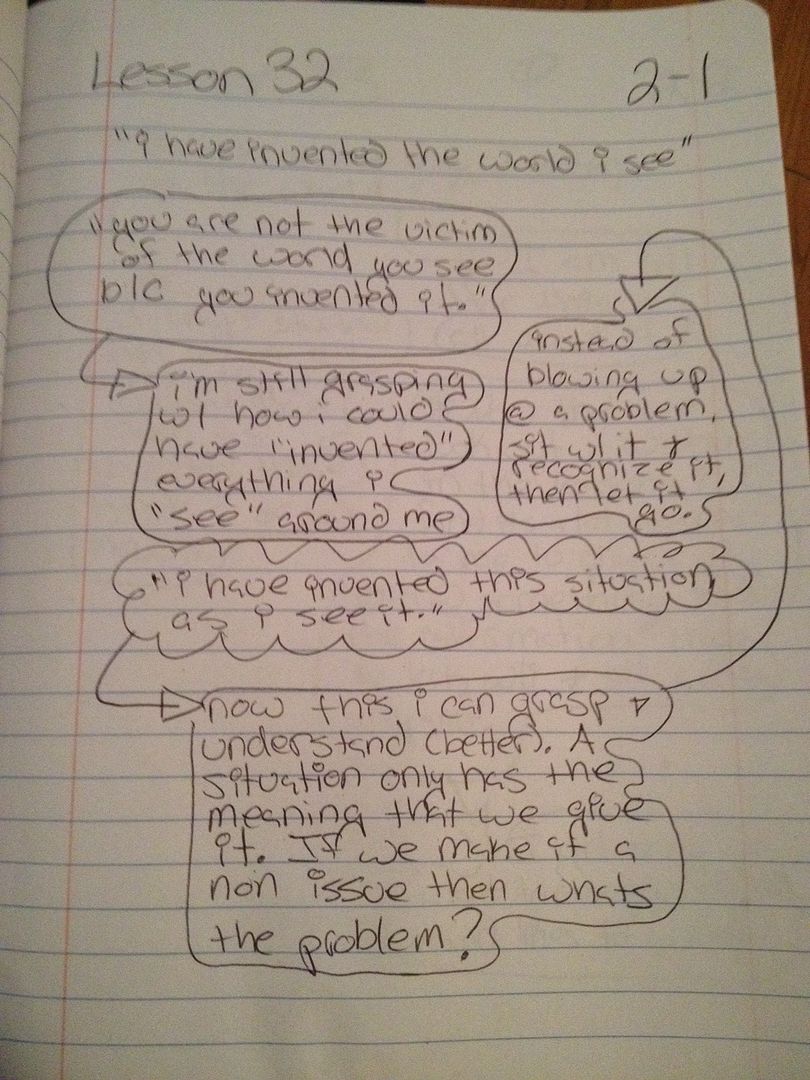 Lesson 32
2-1
"i have invented the world i see"
"you are not the victim
of the world you see
b/c you invented it."
i'm still grasping
w/ how i could
have "invented"
everything i
"see" around me
instead of
blowing up
@ a problem,
sit w/ it +
recognize it,
then let it
go.
"i have invented this situation
as i see it."
now this i can grasp +
understand (better). A
situation only has the
meaning that we give
it. If we make it a
non issue then whats
the problem?